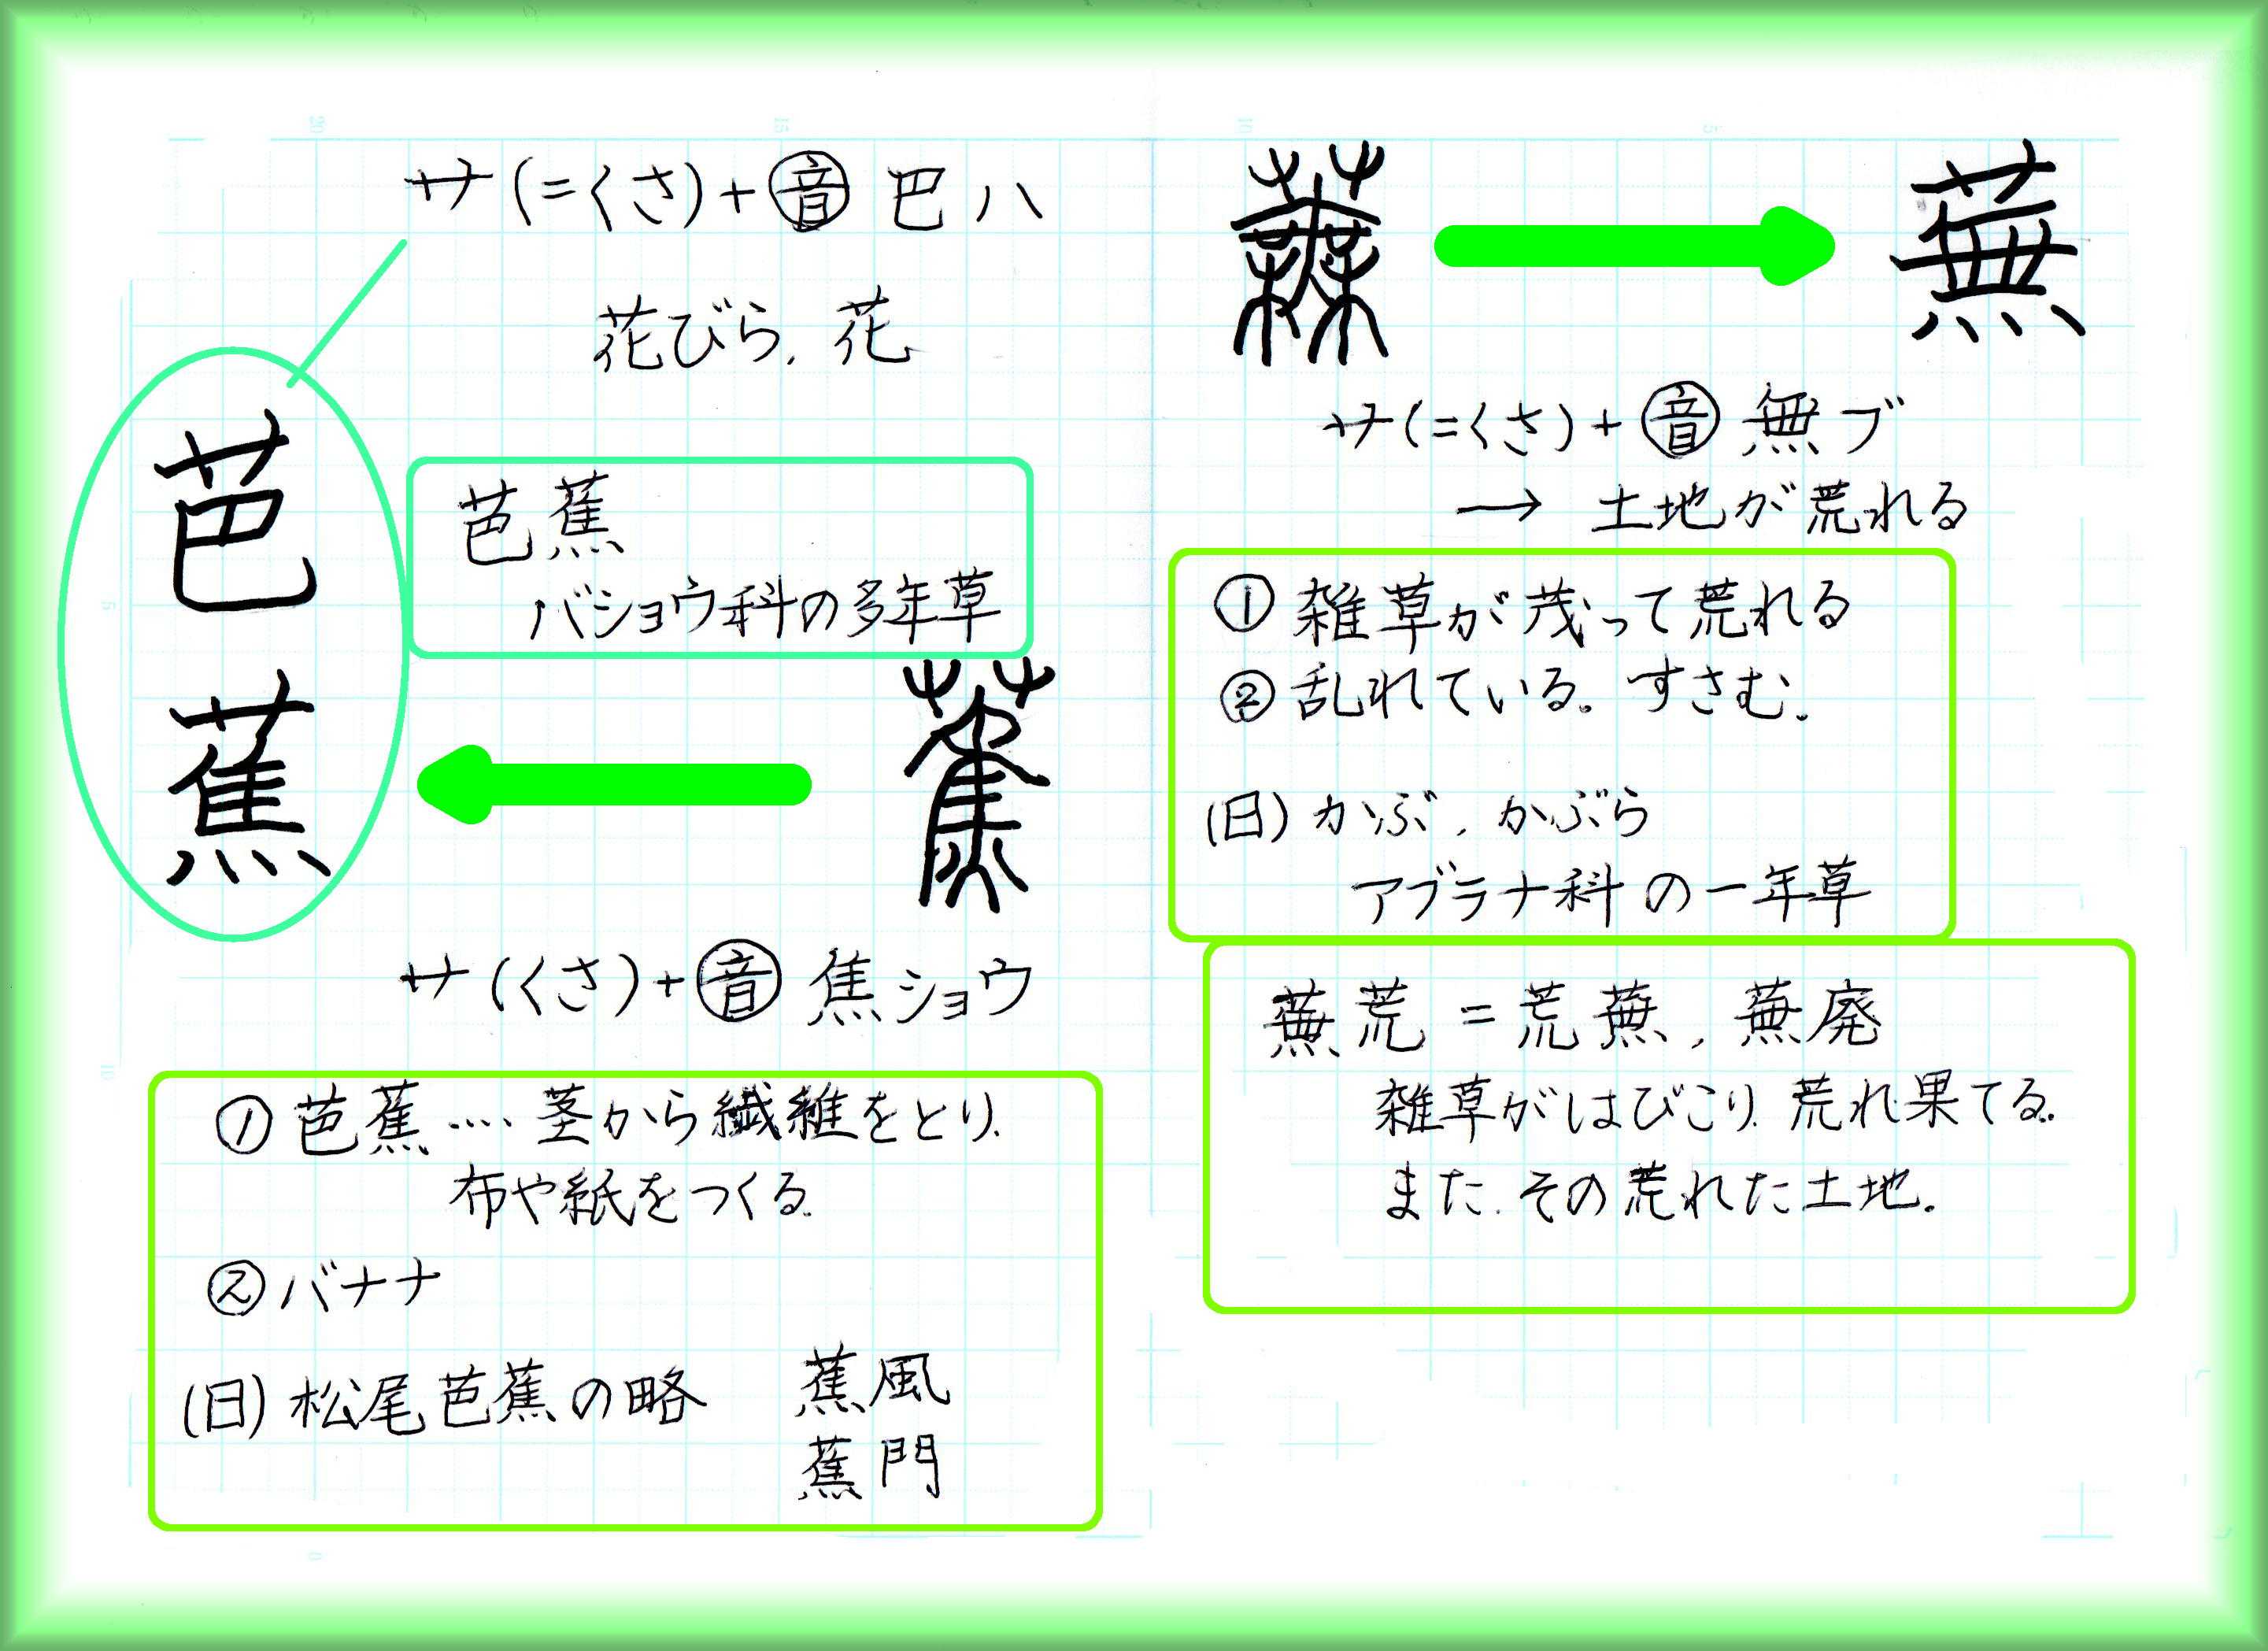 蕪
艹(=くさ)+㊥音 無ブ
→ 土地が荒れる
① 雑草が茂って荒れる
② 乱れている。すさむ。
(日) かぶ、かぶら
アブラナ科の一年草
蕪荒=荒蕪、蕪廃
雑草がはびこり、荒れ果てる。
また、その荒れた土地。
サ(=くさ)+音 巴ハ
花びら、花
芭蕉
芭蕉
バショウ科の多年草
サ(くさ)+音 焦ショウ
① 芭蕉…. 茎から繊維をとり、
布や紙をつくる。
② バナナ
(日) 松尾芭蕉の略 蕉風
蕉門